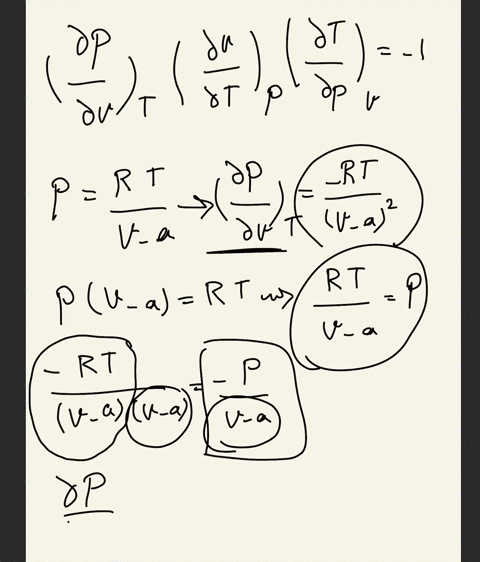 (∂P/∂v)_T (∂v/∂T)_P (∂T/∂P)_v = -1
P = RT/(v-a) → (∂P/∂v)_T = -RT/(v-a)²
P(v-a) = RT ⇝ RT/(v-a) = P
-RT/((v-a)(v-a)) = -P/(v-a)
∂P